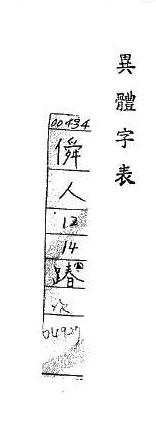 異體字表
00434
僢
人
12
14
踳
次
04929